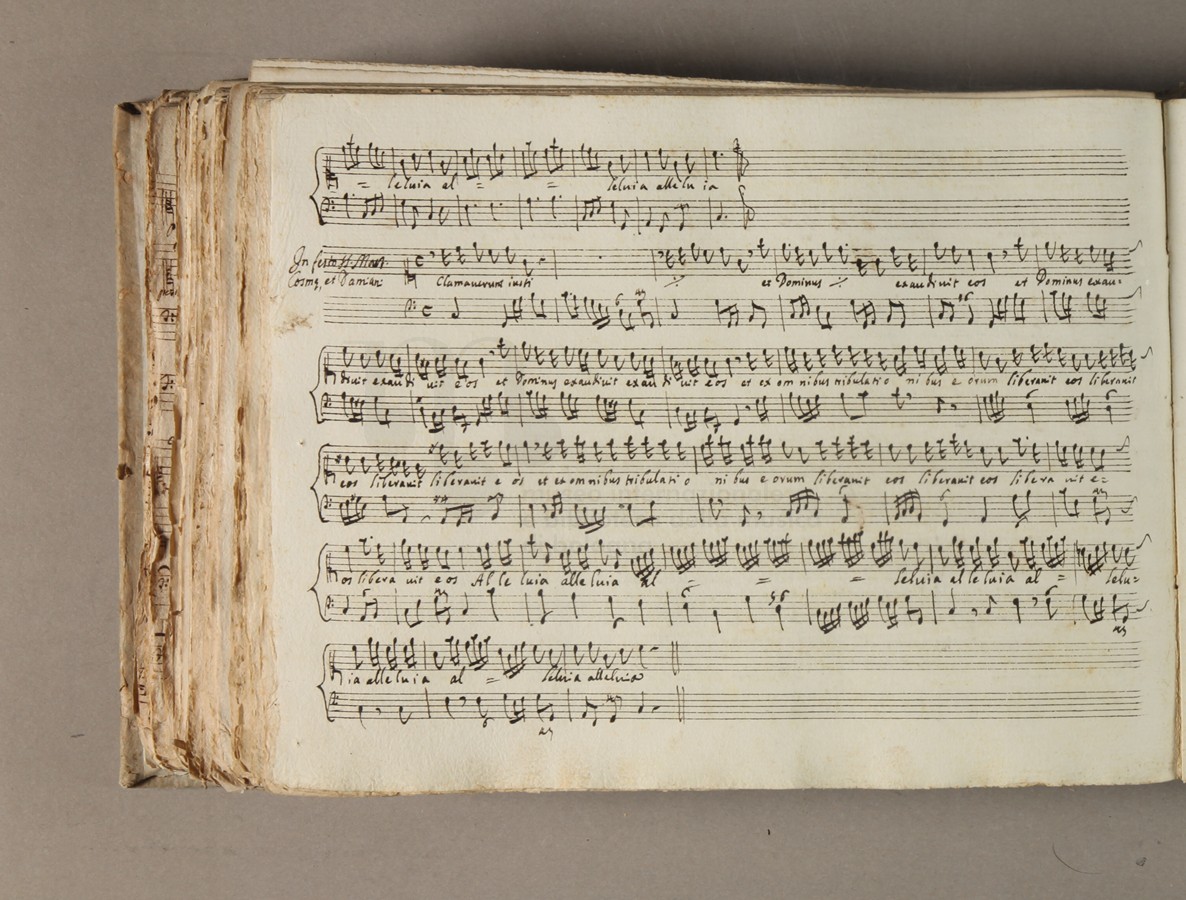 = leluia al = = leluia alleluia
In festo SS. Mar.
Cosmę, et Damian:
Clamaverunt iusti et Dominus exaudivit eos et Dominus exau=
divit exaudivit eos et Dominus exaudivit exaudivit eos et ex omnibus tribulationibus eorum liberavit eos liberavit
eos liberavit liberavit eos et ex omnibus tribulationibus eorum liberavit eos liberavit eos liberavit e=
os liberavit eos Alleluia alleluia al = = = leluia alleluia al = lelu=
ia alleluia al = leluia alleluia